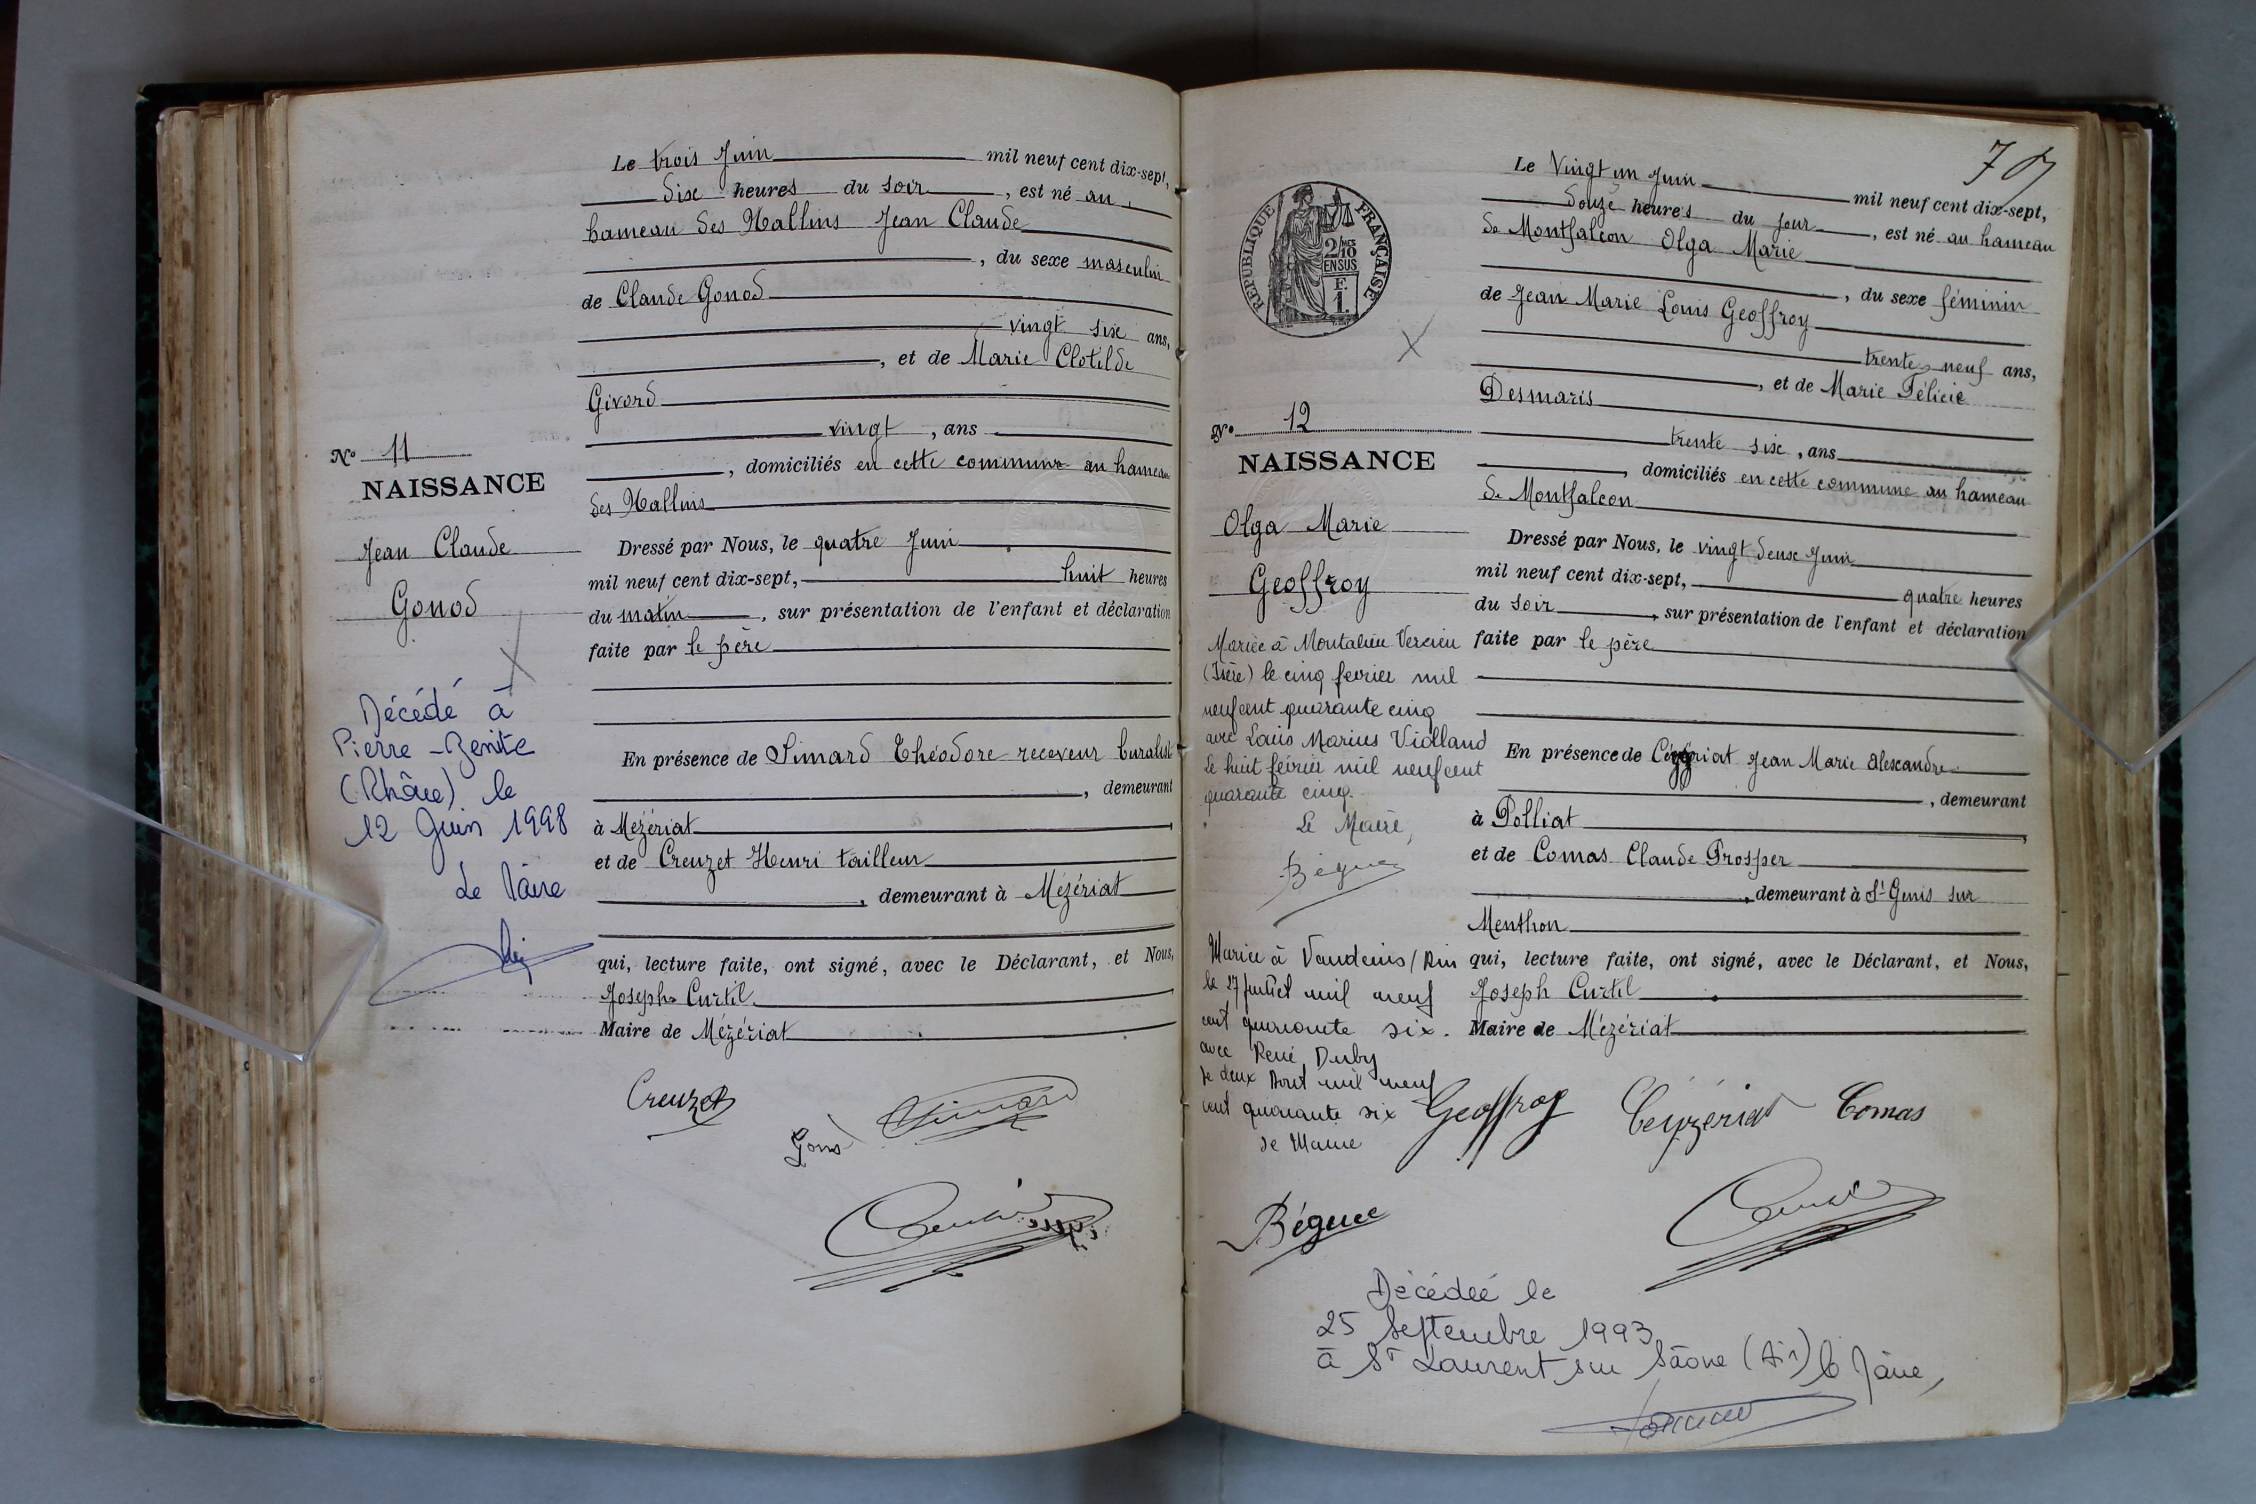 Le trois Juin mil neuf cent dix-sept,
dix heures du soir, est né au
hameau des Mallins Jean Claude
, du sexe masculin
de Claude Gonod
vingt six ans,
, et de Marie Clotilde
Givord
vingt, ans
, domiciliés en cette commune au hameau
des Mallins
Dressé par Nous, le quatre Juin
mil neuf cent dix-sept, huit heures
du matin, sur présentation de l'enfant et déclaration
faite par le père
En présence de Simard Théodore receveur buraliste
, demeurant
à Mézériat
et de Creuzet Henri tailleur
, demeurant à Mézériat
qui, lecture faite, ont signé, avec le Déclarant, et Nous,
Joseph Curtil
Maire de Mézériat
Creuzet
Simard
Gonod
N° 11
NAISSANCE
Jean Claude
Gonod
Décédé à
Pierre-Bénite
(Rhône) le
12 Juin 1998
Le Maire
Le Vingt un Juin mil neuf cent dix-sept,
douze heures du jour, est né au hameau
de Montfalcon Olga Marie
, du sexe féminin
de Jean Marie Louis Geoffroy
trente neuf ans,
, et de Marie Félicie
Desmaris
trente six, ans
, domiciliés en cette commune au hameau
de Montfalcon
Dressé par Nous, le vingt deux Juin
mil neuf cent dix-sept, quatre heures
du soir, sur présentation de l'enfant et déclaration
faite par le père
En présence de Ceyzériat Jean Marie Alexandre
, demeurant
à Polliat
et de Comas Claude Prosper
, demeurant à St Genis sur
Menthon
qui, lecture faite, ont signé, avec le Déclarant, et Nous,
Joseph Curtil
Maire de Mézériat
Geoffroy Ceyzériat Comas
RÉPUBLIQUE FRANÇAISE
2/10
EN SUS
F.
1.
N° 12
NAISSANCE
Olga Marie
Geoffroy
Mariée à Montalieu Vercieu
(Isère) le cinq février mil
neuf cent quarante cinq
avec Louis Marius Violland
Le huit février mil neuf cent
quarante cinq.
Le Maire,
Béguee
Mariée à Vandeins/Ain
le 27 Juillet mil neuf
cent quarante six.
avec René Duby
Le deux Aout mil neuf
cent quarante six
Le Maire
Béguee
Décédée le
25 Septembre 1993
à St Laurent sur Saône (Ain) le Maire,